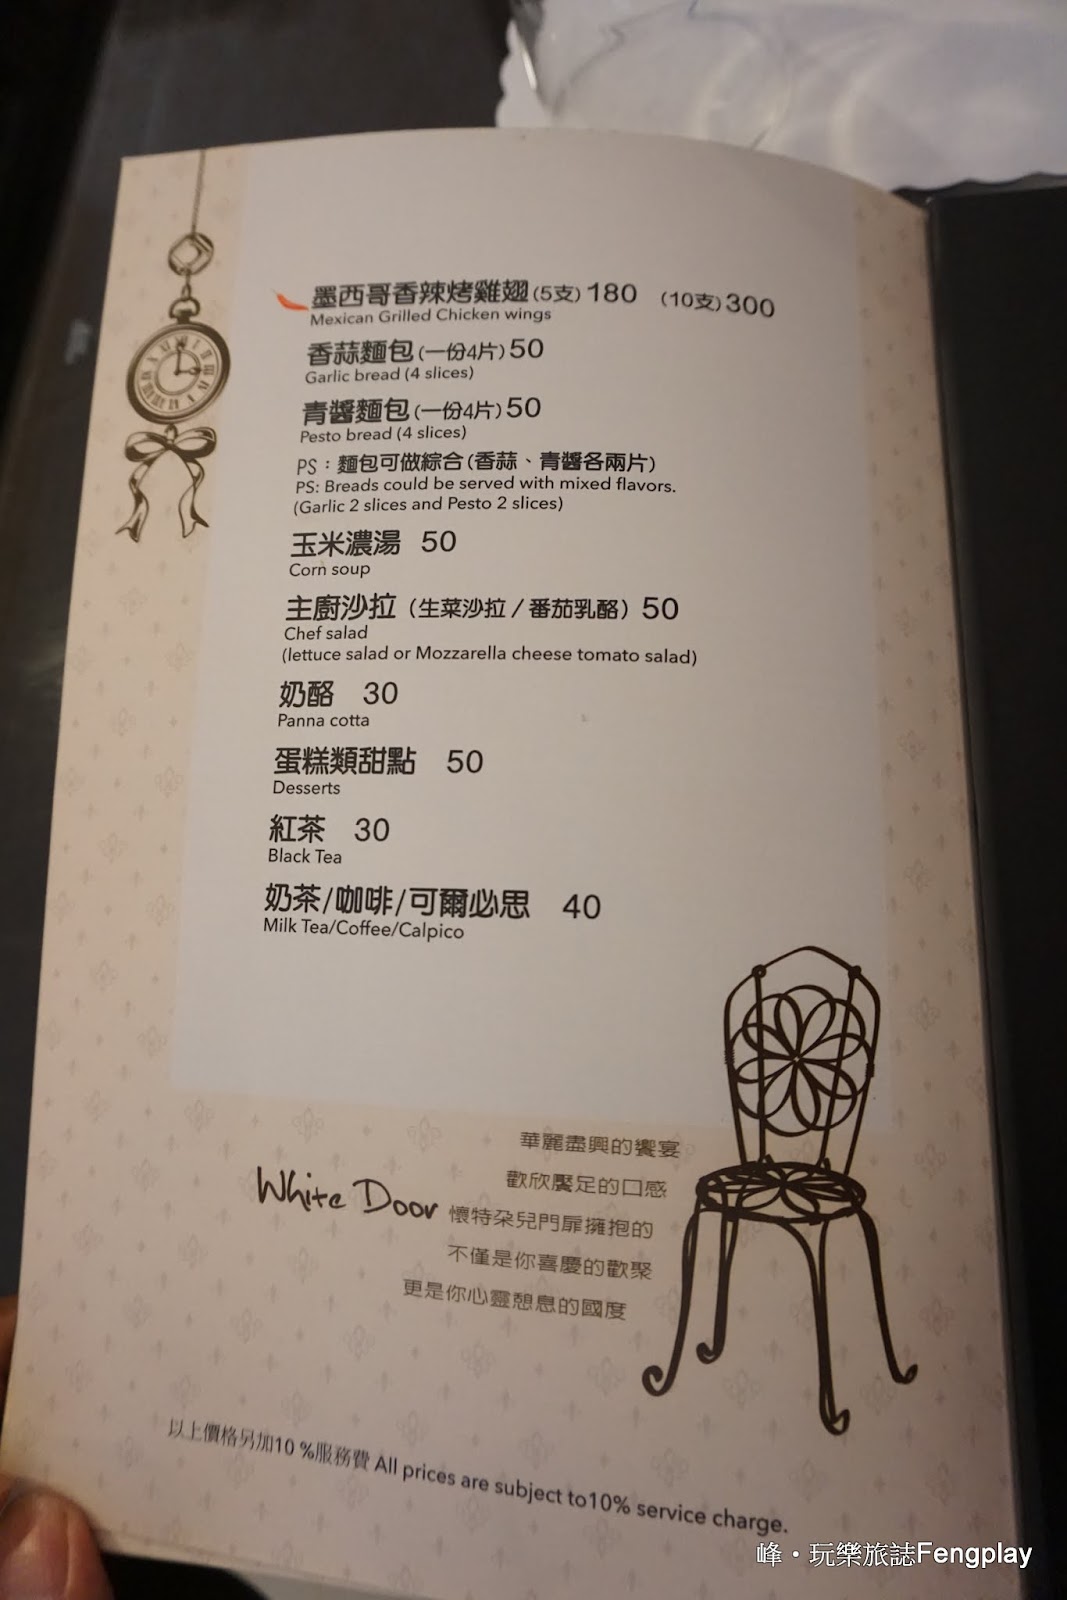 墨西哥香辣烤雞翅(5支)180 (10支)300
Mexican Grilled Chicken wings
香蒜麵包(一份4片)50
Garlic bread (4 slices)
青醬麵包(一份4片)50
Pesto bread (4 slices)
PS：麵包可做綜合(香蒜、青醬各兩片)
PS: Breads could be served with mixed flavors.
(Garlic 2 slices and Pesto 2 slices)
玉米濃湯 50
Corn soup
主廚沙拉（生菜沙拉/番茄乳酪）50
Chef salad
(lettuce salad or Mozzarella cheese tomato salad)
奶酪 30
Panna cotta
蛋糕類甜點 50
Desserts
紅茶 30
Black Tea
奶茶/咖啡/可爾必思 40
Milk Tea/Coffee/Calpico
華麗盡興的饗宴
歡欣饜足的口感
White Door 懷特朵兒門扉擁抱的
不僅是你喜慶的歡聚
更是你心靈憩息的國度
以上價格另加10 %服務費 All prices are subject to10% service charge.
峰•玩樂旅誌Fengplay